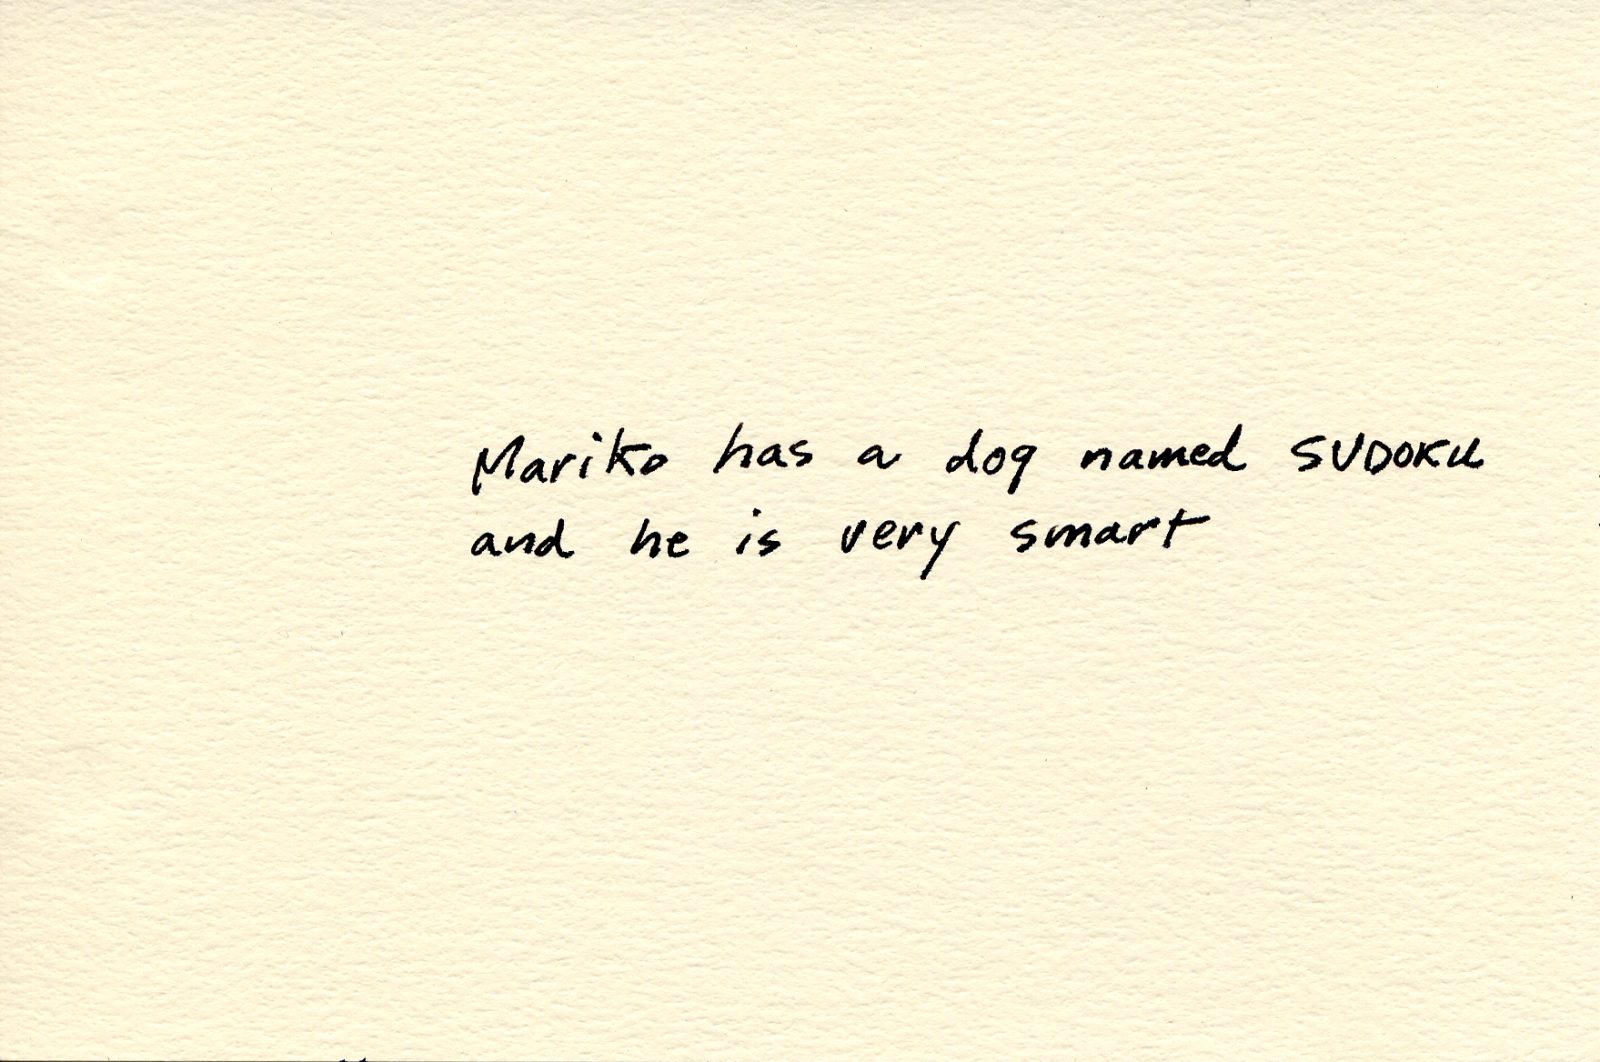 Mariko has a dog named SUDOKU
and he is very smart